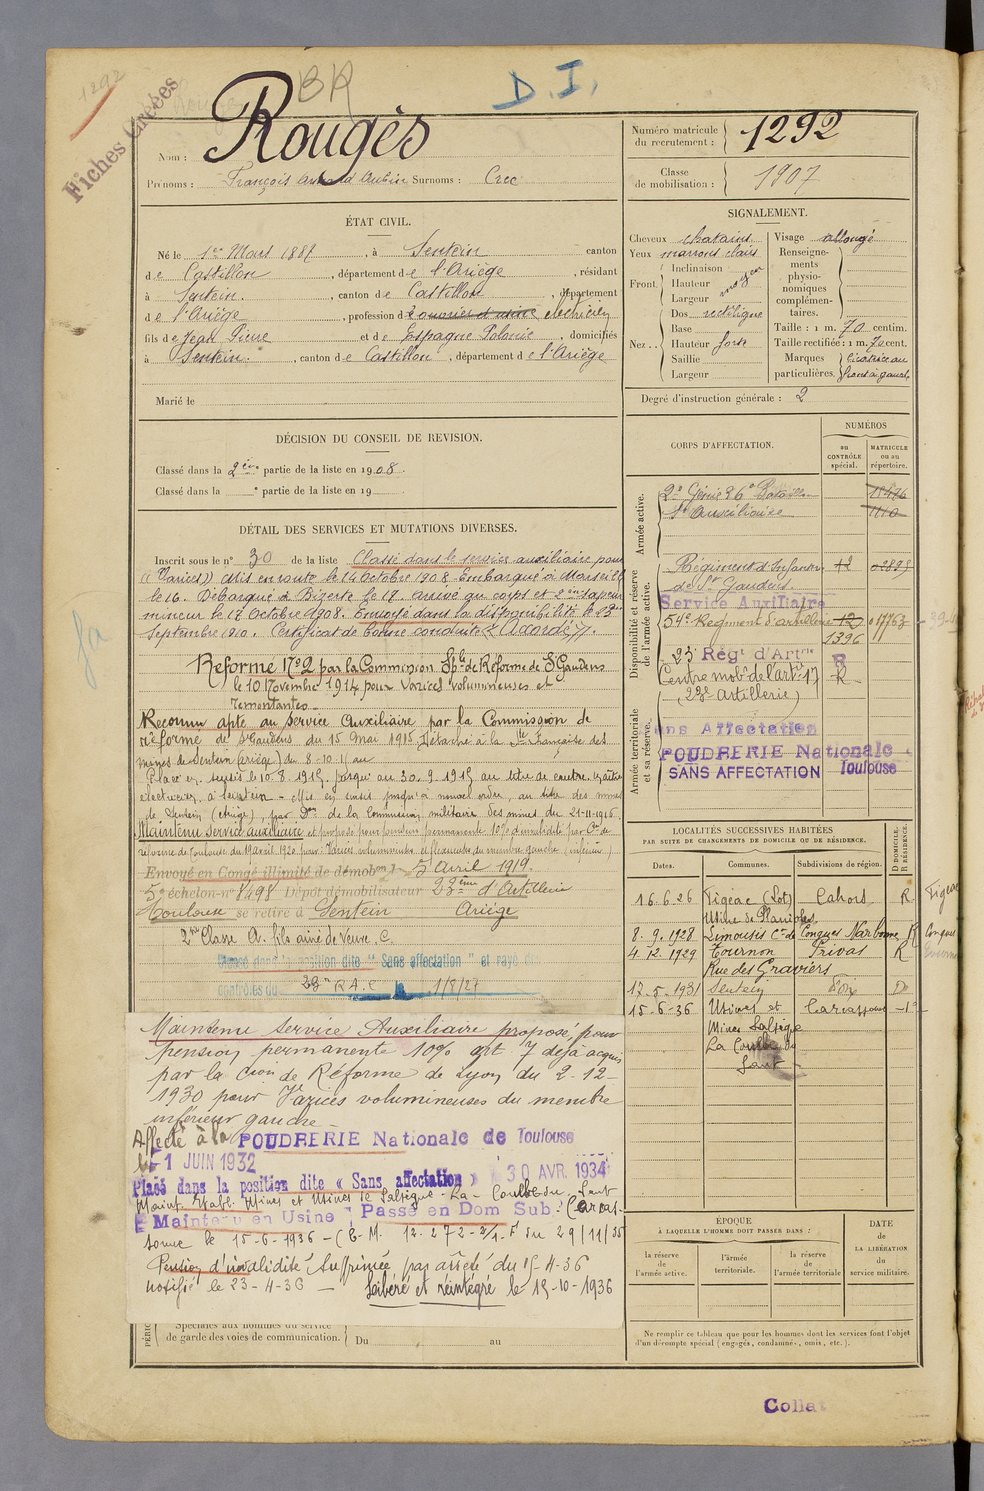 1292
Fiches Créées
BR
D. I.
Nom : Rougès
Prénoms : François Armand Aubin Surnoms : Crec
Numéro matricule du recrutement : 1292
Classe de mobilisation : 1907
ÉTAT CIVIL.
Né le 1er Mars 1887, à Sentein canton
de Castillon, département de l'Ariège, résidant
à Sentein, canton de Castillon, département
de l'Ariège, profession d électricien
fils de Jean Pierre et de Espagne Polonie, domiciliés
à Sentein, canton de Castillon, département de l'Ariège
Marié le
SIGNALEMENT.
Cheveux chatains
Yeux marrons clairs
Front. Inclinaison
Hauteur moyen
Largeur
Nez .. Dos rectiligne
Base
Hauteur forte
Saillie
Largeur
Visage allongé
Renseignements physionomiques complémentaires.
Taille : 1 m. 70 centim.
Taille rectifiée : 1 m. 72 cent.
Marques particulières. Cicatrice au front à gauche
Degré d'instruction générale : 2
DÉCISION DU CONSEIL DE REVISION.
Classé dans la 2e partie de la liste en 1908.
Classé dans la e partie de la liste en 19
DÉTAIL DES SERVICES ET MUTATIONS DIVERSES.
Inscrit sous le n° 30 de la liste Classé dans le service auxiliaire pour
(( Varices)) Mis en route le 14 Octobre 1908. Embarqué à Marseille
le 16. Débarqué à Bizerte le 17. Arrivé au corps et 2ème sapeur
mineur le 17 Octobre 1908. Envoyé dans la disponibilité le 25
Septembre 1910. Certificat de bonne conduite (( Accordé)).
Réforme N°2 par la Commission Sple de Réforme de St Gaudens
le 10 Novembre 1914 pour Varices volumineuses et
remontantes.
Reconnu apte au Service Auxiliaire par la Commission de
réforme de St Gaudens du 15 Mai 1915. Détaché à la Sté Française des
mines de Sentein (Ariège) du 8-10-15 au
Placé en sursis le 10.8.1915 jusqu'au 30.9.1915 au titre de
électricien à Sentein - Mis en sursis jusqu'à nouvel ordre, au titre des mines
de Sentein (Ariège), par Don de la Commission militaire des mines du 21-11-1916.
Maintenu Service auxiliaire et proposé pour pension permanente 10% d'invalidité par Con de
réforme de Toulouse du 19 avril 1920 pour Varices volumineuses et flexueuses du membre gauche (inférieur)
Envoyé en Congé illimité de démobon le 5 Avril 1919.
5e échelon - n° 8498 Dépôt démobilisateur 23ème d'artillerie
Toulouse se retire à Sentein Ariège
2me Classe A. fils ainé de Veuve. C.
Classé dans la position dite " Sans affectation " et rayé des
contrôles du 23e R A C le 1/8/27
Maintenu Service Auxiliaire proposé pour
pension permanente 10% art 7 déjà acquis
par la Cion de Réforme de Lyon du 2-12-
1930 pour Varices volumineuses du membre
inférieur gauche
Affecté à la POUDRERIE Nationale de Toulouse
le 1 JUIN 1932
Plasé dans la position dite « Sans affectation » 30 AVR. 1934
Maint. Etabl. Mines et Usines de Salsigne - La - Combe du Saut
Maintenu en Usine Passé en Dom Sub. Carcas-
sonne le 15-6-1936 - (C.M. 12-272-2/1-F du 29/11/35
Pension d'invalidité supprimée par arrêté du 15-4-36
notifié le 23-4-36 - Libéré et réintégré le 15-10-1936
spéciales aux hommes du service
de garde des voies de communication.
Du au
CORPS D'AFFECTATION.
NUMÉROS
au CONTRÔLE spécial.
MATRICULE ou au répertoire.
Armée active.
2e Génie 26e Bataillon
St Auxiliaire
Disponibilité et réserve de l'armée active.
Régiment d'Infanterie
de St Gaudens
Service Auxiliaire
54e Régiment d'artillerie
1396
23 Régt d'Artrie R
Centre mobre de l'art. 17 R
(23e Artillerie)
Armée territoriale et sa réserve.
Sans Affectation
POUDRERIE Nationale
SANS AFFECTATION Toulouse
LOCALITÉS SUCCESSIVES HABITÉES
PAR SUITE DE CHANGEMENTS DE DOMICILE OU DE RÉSIDENCE.
Dates. Communes. Subdivisions de région. D DOMICILE. R RÉSIDENCE.
16.6.26 Figeac (Lot) Cahors R
Usine de Planioles
8. 9. 1928 Limousis Cn de Conques Narbonne R
4. 12. 1929 Tournon Privas R
Rue des Graviers
17-5-1931 Sentein Foix Do
15-6-36 Usines et Carcassonne
Mines Salsigne
La Combe du
Saut
ÉPOQUE
À LAQUELLE L'HOMME DOIT PASSER DANS :
la réserve de l'armée active.
l'armée territoriale.
la réserve de l'armée territoriale
DATE DE LA LIBÉRATION du service militaire.
Ne remplir ce tableau que pour les hommes dont les services font l'objet
d'un décompte spécial (engagés, condamnés, omis, etc.).
Collat